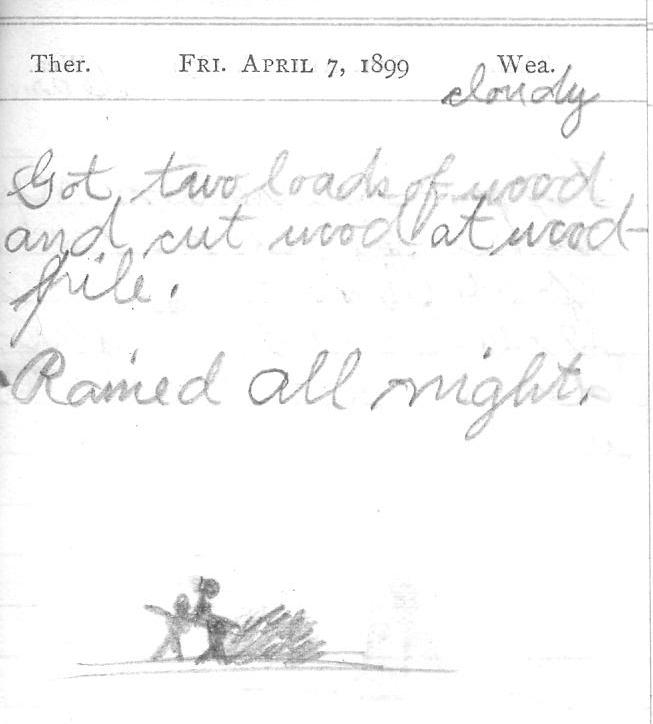 Ther. FRI. APRIL 7, 1899 Wea.
cloudy
Got two loads of wood
and cut wood at wood-
pile.
Rained all night.